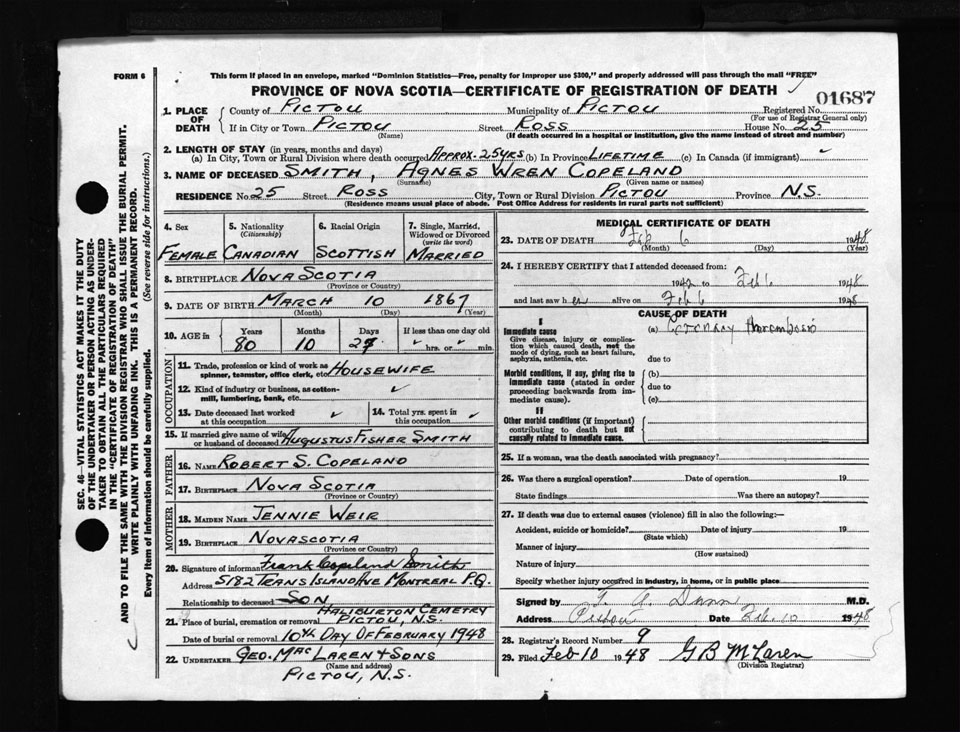 FORM 6
This form if placed in an envelope, marked "Dominion Statistics—Free, penalty for improper use $300," and properly addressed will pass through the mail "FREE"
PROVINCE OF NOVA SCOTIA—CERTIFICATE OF REGISTRATION OF DEATH
01687
1. PLACE OF DEATH
County of PICTOU Municipality of PICTOU Registered No.
(For use of Registrar General only)
If in City or Town PICTOU Street ROSS House No. 25
(Name) (If death occurred in a hospital or institution, give the name instead of street and number)
2. LENGTH OF STAY (in years, months and days)
(a) In City, Town or Rural Division where death occurred APPROX. 25 YRS (b) In Province LIFETIME (c) In Canada (if immigrant)
3. NAME OF DECEASED SMITH, AGNES WREN COPELAND
(Surname) (Given name or names)
RESIDENCE No. 25 Street ROSS City, Town or Rural Division PICTOU Province N.S.
(Residence means usual place of abode. Post Office Address for residents in rural parts not sufficient)
4. Sex
FEMALE
5. Nationality
(Citizenship)
CANADIAN
6. Racial Origin
SCOTTISH
7. Single, Married, Widowed or Divorced
(write the word)
MARRIED
8. BIRTHPLACE NOVA SCOTIA
(Province or Country)
9. DATE OF BIRTH MARCH 10 1867
(Month) (Day) (Year)
10. AGE in Years Months Days If less than one day old
80 10 27 hrs. or min.
OCCUPATION
11. Trade, profession or kind of work as spinner, teamster, office clerk, etc HOUSEWIFE
12. Kind of industry or business, as cotton-mill, lumbering, bank, etc.
13. Date deceased last worked at this occupation
14. Total yrs. spent in this occupation
15. If married give name of wife or husband of deceased AUGUSTUS FISHER SMITH
FATHER
16. NAME ROBERT S. COPELAND
17. BIRTHPLACE NOVA SCOTIA
(Province or Country)
MOTHER
18. MAIDEN NAME JENNIE WEIR
19. BIRTHPLACE NOVA SCOTIA
(Province or Country)
20. Signature of informant Frank Copeland Smith
Address 5182 TRANS ISLAND AVE MONTREAL P.Q.
Relationship to deceased SON
HALIBURTON CEMETRY
21. Place of burial, cremation or removal PICTOU, N.S.
Date of burial or removal 10TH DAY OF FEBRUARY 1948
22. UNDERTAKER GEO. MACLAREN & SONS
(Name and address)
PICTOU, N.S.
MEDICAL CERTIFICATE OF DEATH
23. DATE OF DEATH Feb 6 1948
(Month) (Day)
24. I HEREBY CERTIFY that I attended deceased from:
1942 to Feb 6 1948
and last saw her alive on Feb 6 1948
CAUSE OF DEATH
I
Immediate cause
Give disease, injury or complication which caused death, not the mode of dying, such as heart failure, asphyxia, asthenia, etc.
(a) Coronary Thrombosis
due to
Morbid conditions, if any, giving rise to immediate cause (stated in order proceeding backwards from immediate cause).
(b)
due to
(c)
II
Other morbid conditions (if important) contributing to death but not causally related to immediate cause.
25. If a woman, was the death associated with pregnancy?
26. Was there a surgical operation? Date of operation 19
State findings Was there an autopsy?
27. If death was due to external causes (violence) fill in also the following:—
Accident, suicide or homicide? Date of injury 19
(State which)
Manner of injury
(How sustained)
Nature of injury
Specify whether injury occurred in industry, in home, or in public place
Signed by Dunn M.D.
Address Pictou Date Feb. 10 1948
28. Registrar's Record Number 9
29. Filed Feb 10 1948 G B McLaren
(Division Registrar)
SEC. 46—VITAL STATISTICS ACT MAKES IT THE DUTY
OF THE UNDERTAKER OR PERSON ACTING AS UNDER-
TAKER TO OBTAIN ALL THE PARTICULARS REQUIRED
IN THE "CERTIFICATE OF REGISTRATION OF DEATH"
AND TO FILE THE SAME WITH THE DIVISION REGISTRAR WHO SHALL ISSUE THE BURIAL PERMIT.
WRITE PLAINLY WITH UNFADING INK. THIS IS A PERMANENT RECORD.
Every item of information should be carefully supplied. (See reverse side for instructions.)